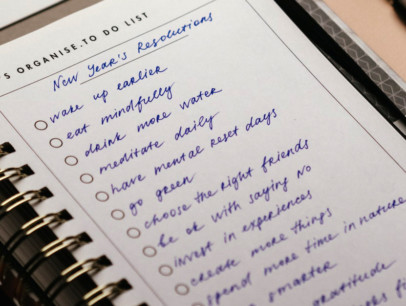 'S ORGANISE.TO DO LIST
New Year's Resolutions
wake up earlier
eat mindfully
drink more water
meditate daily
have mental reset days
go green
choose the right friends
be ok with saying NO
invest in experiences
create more things
spend more time in nature
smarter
gratitude